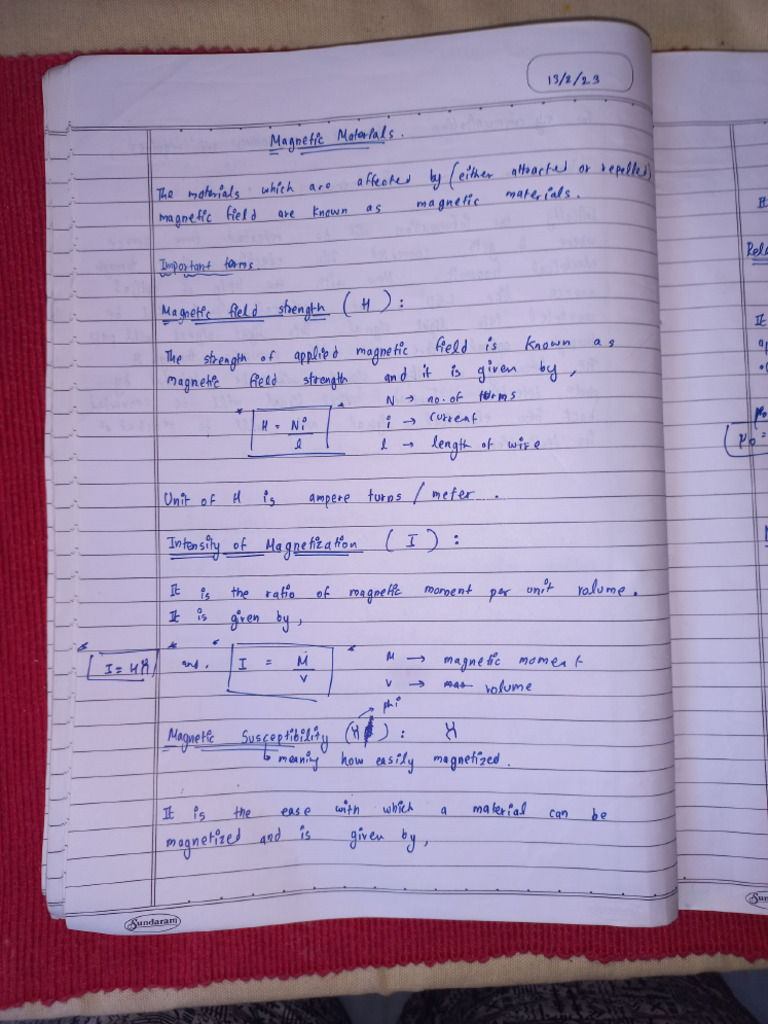 13/2/23
Magnetic Materials.
The materials which are affected by (either attracted or repelled)
magnetic field are known as magnetic materials.
Important terms.
Magnetic field strength (H) :
The strength of applied magnetic field is known as
magnetic field strength and it is given by,
N → no. of terms
H = Ni/l
i → current
l → length of wire
Unit of H is ampere turns / meter.
Intensity of Magnetization (I) :
It is the ratio of magnetic moment per unit volume.
It is given by,
I = Hχ and, I = M/V
M → magnetic moment
V → volume
phi
Magnetic Susceptibility (χ) : χ
↳ meaning how easily magnetized.
It is the ease with which a material can be
magnetized and is given by,
Sundaram
It
Rela
It
ap
μ0 =
Sun